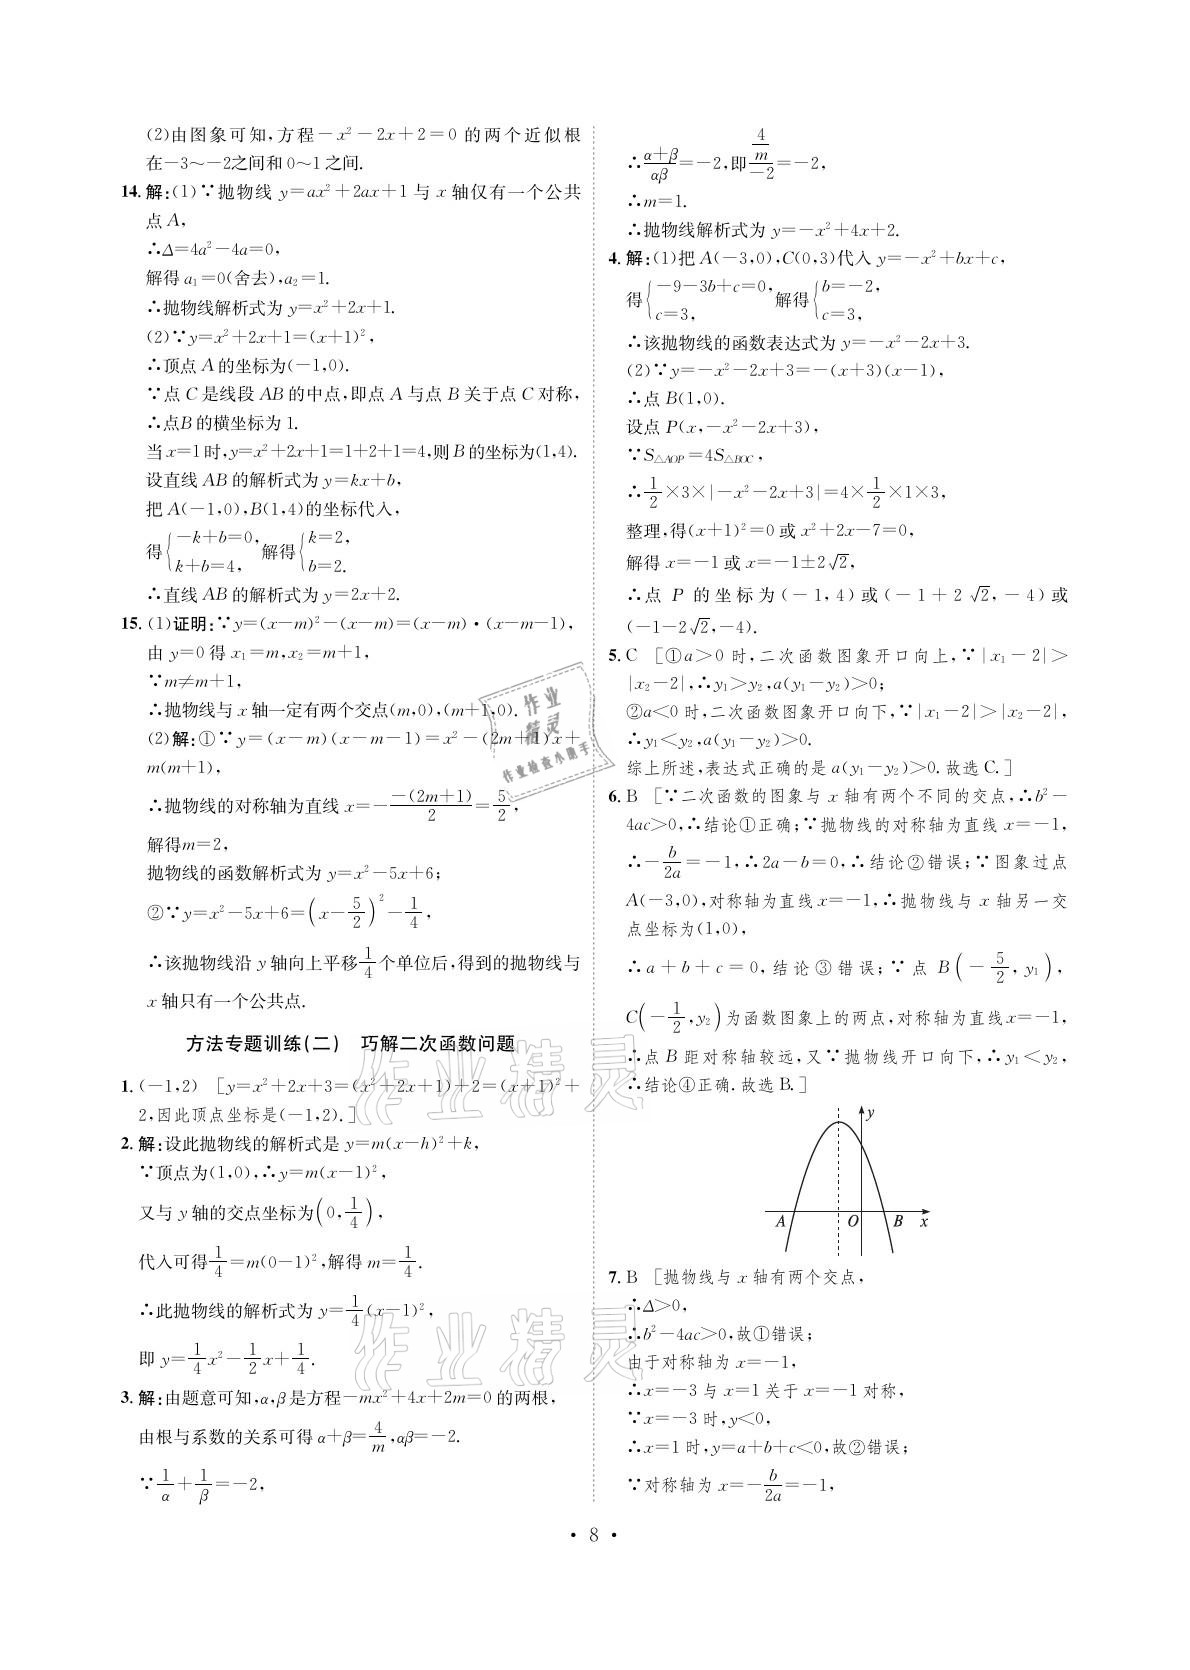 (2)由图象可知,方程－x²－2x＋2＝0 的两个近似根
在－3～－2之间和 0～1 之间.
14. 解:(1)∵抛物线 y＝ax²＋2ax＋1 与 x 轴仅有一个公共
点 A,
∴Δ＝4a²－4a＝0,
解得 a₁＝0(舍去),a₂＝1.
∴抛物线解析式为 y＝x²＋2x＋1.
(2)∵y＝x²＋2x＋1＝(x＋1)²,
∴顶点 A 的坐标为(－1,0).
∵点 C 是线段 AB 的中点,即点 A 与点 B 关于点 C 对称,
∴点B 的横坐标为 1.
当 x＝1 时,y＝x²＋2x＋1＝1＋2＋1＝4,则 B 的坐标为(1,4).
设直线 AB 的解析式为 y＝kx＋b,
把 A(－1,0),B(1,4)的坐标代入,
得{－k＋b＝0, k＋b＝4, 解得{k＝2, b＝2.
∴直线 AB 的解析式为 y＝2x＋2.
15. (1)证明:∵y＝(x－m)²－(x－m)＝(x－m)·(x－m－1),
由 y＝0 得 x₁＝m,x₂＝m＋1,
∵m≠m＋1,
∴抛物线与 x 轴一定有两个交点(m,0),(m＋1,0).
(2)解:①∵y＝(x－m)(x－m－1)＝x²－(2m＋1)x＋
m(m＋1),
∴抛物线的对称轴为直线 x＝－－(2m＋1)/2＝5/2,
解得m＝2,
抛物线的函数解析式为 y＝x²－5x＋6;
②∵y＝x²－5x＋6＝(x－5/2)²－1/4,
∴该抛物线沿 y 轴向上平移1/4个单位后,得到的抛物线与
x 轴只有一个公共点.
方法专题训练(二) 巧解二次函数问题
1. (－1,2) [y＝x²＋2x＋3＝(x²＋2x＋1)＋2＝(x＋1)²＋
2,因此顶点坐标是(－1,2).]
2. 解:设此抛物线的解析式是 y＝m(x－h)²＋k,
∵顶点为(1,0),∴y＝m(x－1)²,
又与 y 轴的交点坐标为(0,1/4),
代入可得1/4＝m(0－1)²,解得 m＝1/4.
∴此抛物线的解析式为 y＝1/4(x－1)²,
即 y＝1/4x²－1/2x＋1/4.
3. 解:由题意可知,α,β是方程－mx²＋4x＋2m＝0 的两根,
由根与系数的关系可得 α＋β＝4/m,αβ＝－2.
∵1/α＋1/β＝－2,
∴(α＋β)/αβ＝－2,即(4/m)/－2＝－2,
∴m＝1.
∴抛物线解析式为 y＝－x²＋4x＋2.
4. 解:(1)把 A(－3,0),C(0,3)代入 y＝－x²＋bx＋c,
得{－9－3b＋c＝0, c＝3, 解得{b＝－2, c＝3,
∴该抛物线的函数表达式为 y＝－x²－2x＋3.
(2)∵y＝－x²－2x＋3＝－(x＋3)(x－1),
∴点 B(1,0).
设点 P(x,－x²－2x＋3),
∵S△AOP＝4S△BOC,
∴1/2×3×|－x²－2x＋3|＝4×1/2×1×3,
整理,得(x＋1)²＝0 或 x²＋2x－7＝0,
解得 x＝－1 或 x＝－1±2√2,
∴点 P 的坐标为(－1,4)或(－1＋2√2,－4)或
(－1－2√2,－4).
5. C [①a＞0 时,二次函数图象开口向上,∵|x₁－2|＞
|x₂－2|,∴y₁＞y₂,a(y₁－y₂)＞0;
②a＜0 时,二次函数图象开口向下,∵|x₁－2|＞|x₂－2|,
∴y₁＜y₂,a(y₁－y₂)＞0.
综上所述,表达式正确的是 a(y₁－y₂)＞0.故选 C.]
6. B [∵二次函数的图象与 x 轴有两个不同的交点,∴b²－
4ac＞0,∴结论①正确;∵抛物线的对称轴为直线 x＝－1,
∴－b/2a＝－1,∴2a－b＝0,∴结论②错误;∵图象过点
A(－3,0),对称轴为直线 x＝－1,∴抛物线与 x 轴另一交
点坐标为(1,0),
∴a＋b＋c＝0,结论③错误;∵点 B(－5/2,y₁),
C(－1/2,y₂)为函数图象上的两点,对称轴为直线 x＝－1,
∴点 B 距对称轴较远,又∵抛物线开口向下,∴y₁＜y₂,
∴结论④正确.故选 B.]
y
A O B x
7. B [抛物线与 x 轴有两个交点,
∴Δ＞0,
∴b²－4ac＞0,故①错误;
由于对称轴为 x＝－1,
∴x＝－3 与 x＝1 关于 x＝－1 对称,
∵x＝－3 时,y＜0,
∴x＝1 时,y＝a＋b＋c＜0,故②错误;
∵对称轴为 x＝－b/2a＝－1,
· 8 ·
作业
精灵
作业检查小助手
作业精灵
作业精灵